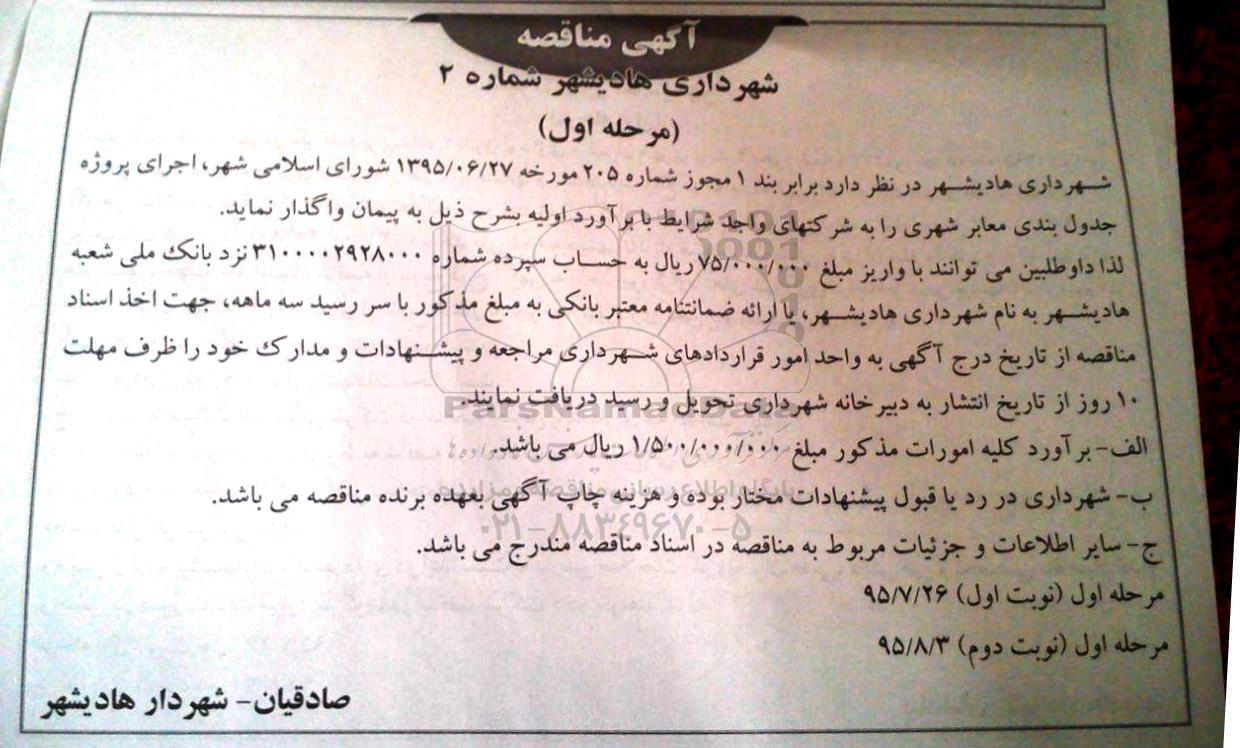 آگهی مناقصه
شهرداری هادیشهر شماره ۲
(مرحله اول)
شهرداری هادیشهر در نظر دارد برابر بند ۱ مجوز شماره ۲۰۵ مورخه ۱۳۹۵/۰۶/۲۷ شورای اسلامی شهر، اجرای پروژه
جدول بندی معابر شهری را به شرکتهای واجد شرایط با برآورد اولیه بشرح ذیل به پیمان واگذار نماید.
لذا داوطلبین می توانند با واریز مبلغ ۷۵/۰۰۰/۰۰۰ ریال به حساب سپرده شماره ۳۱۰۰۰۰۲۹۲۸۰۰۰ نزد بانک ملی شعبه
هادیشهر به نام شهرداری هادیشهر، یا ارائه ضمانتنامه معتبر بانکی به مبلغ مذکور با سر رسید سه ماهه، جهت اخذ اسناد
مناقصه از تاریخ درج آگهی به واحد امور قراردادهای شهرداری مراجعه و پیشنهادات و مدارک خود را ظرف مهلت
۱۰ روز از تاریخ انتشار به دبیرخانه شهرداری تحویل و رسید دریافت نمایند.
ParsNamadData
الف- برآورد کلیه امورات مذکور مبلغ ۱/۵۰۰/۰۰۰/۰۰۰ ریال می باشد.
پایگاه اطلاع رسانی مناقصه و مزایده
ب- شهرداری در رد یا قبول پیشنهادات مختار بوده و هزینه چاپ آگهی بعهده برنده مناقصه می باشد.
۰۲۱-۸۸۳۴۹۶۷۰-۵
ج- سایر اطلاعات و جزئیات مربوط به مناقصه در اسناد مناقصه مندرج می باشد.
مرحله اول (نوبت اول) ۹۵/۷/۲۶
مرحله اول (نوبت دوم) ۹۵/۸/۳
صادقیان- شهردار هادیشهر